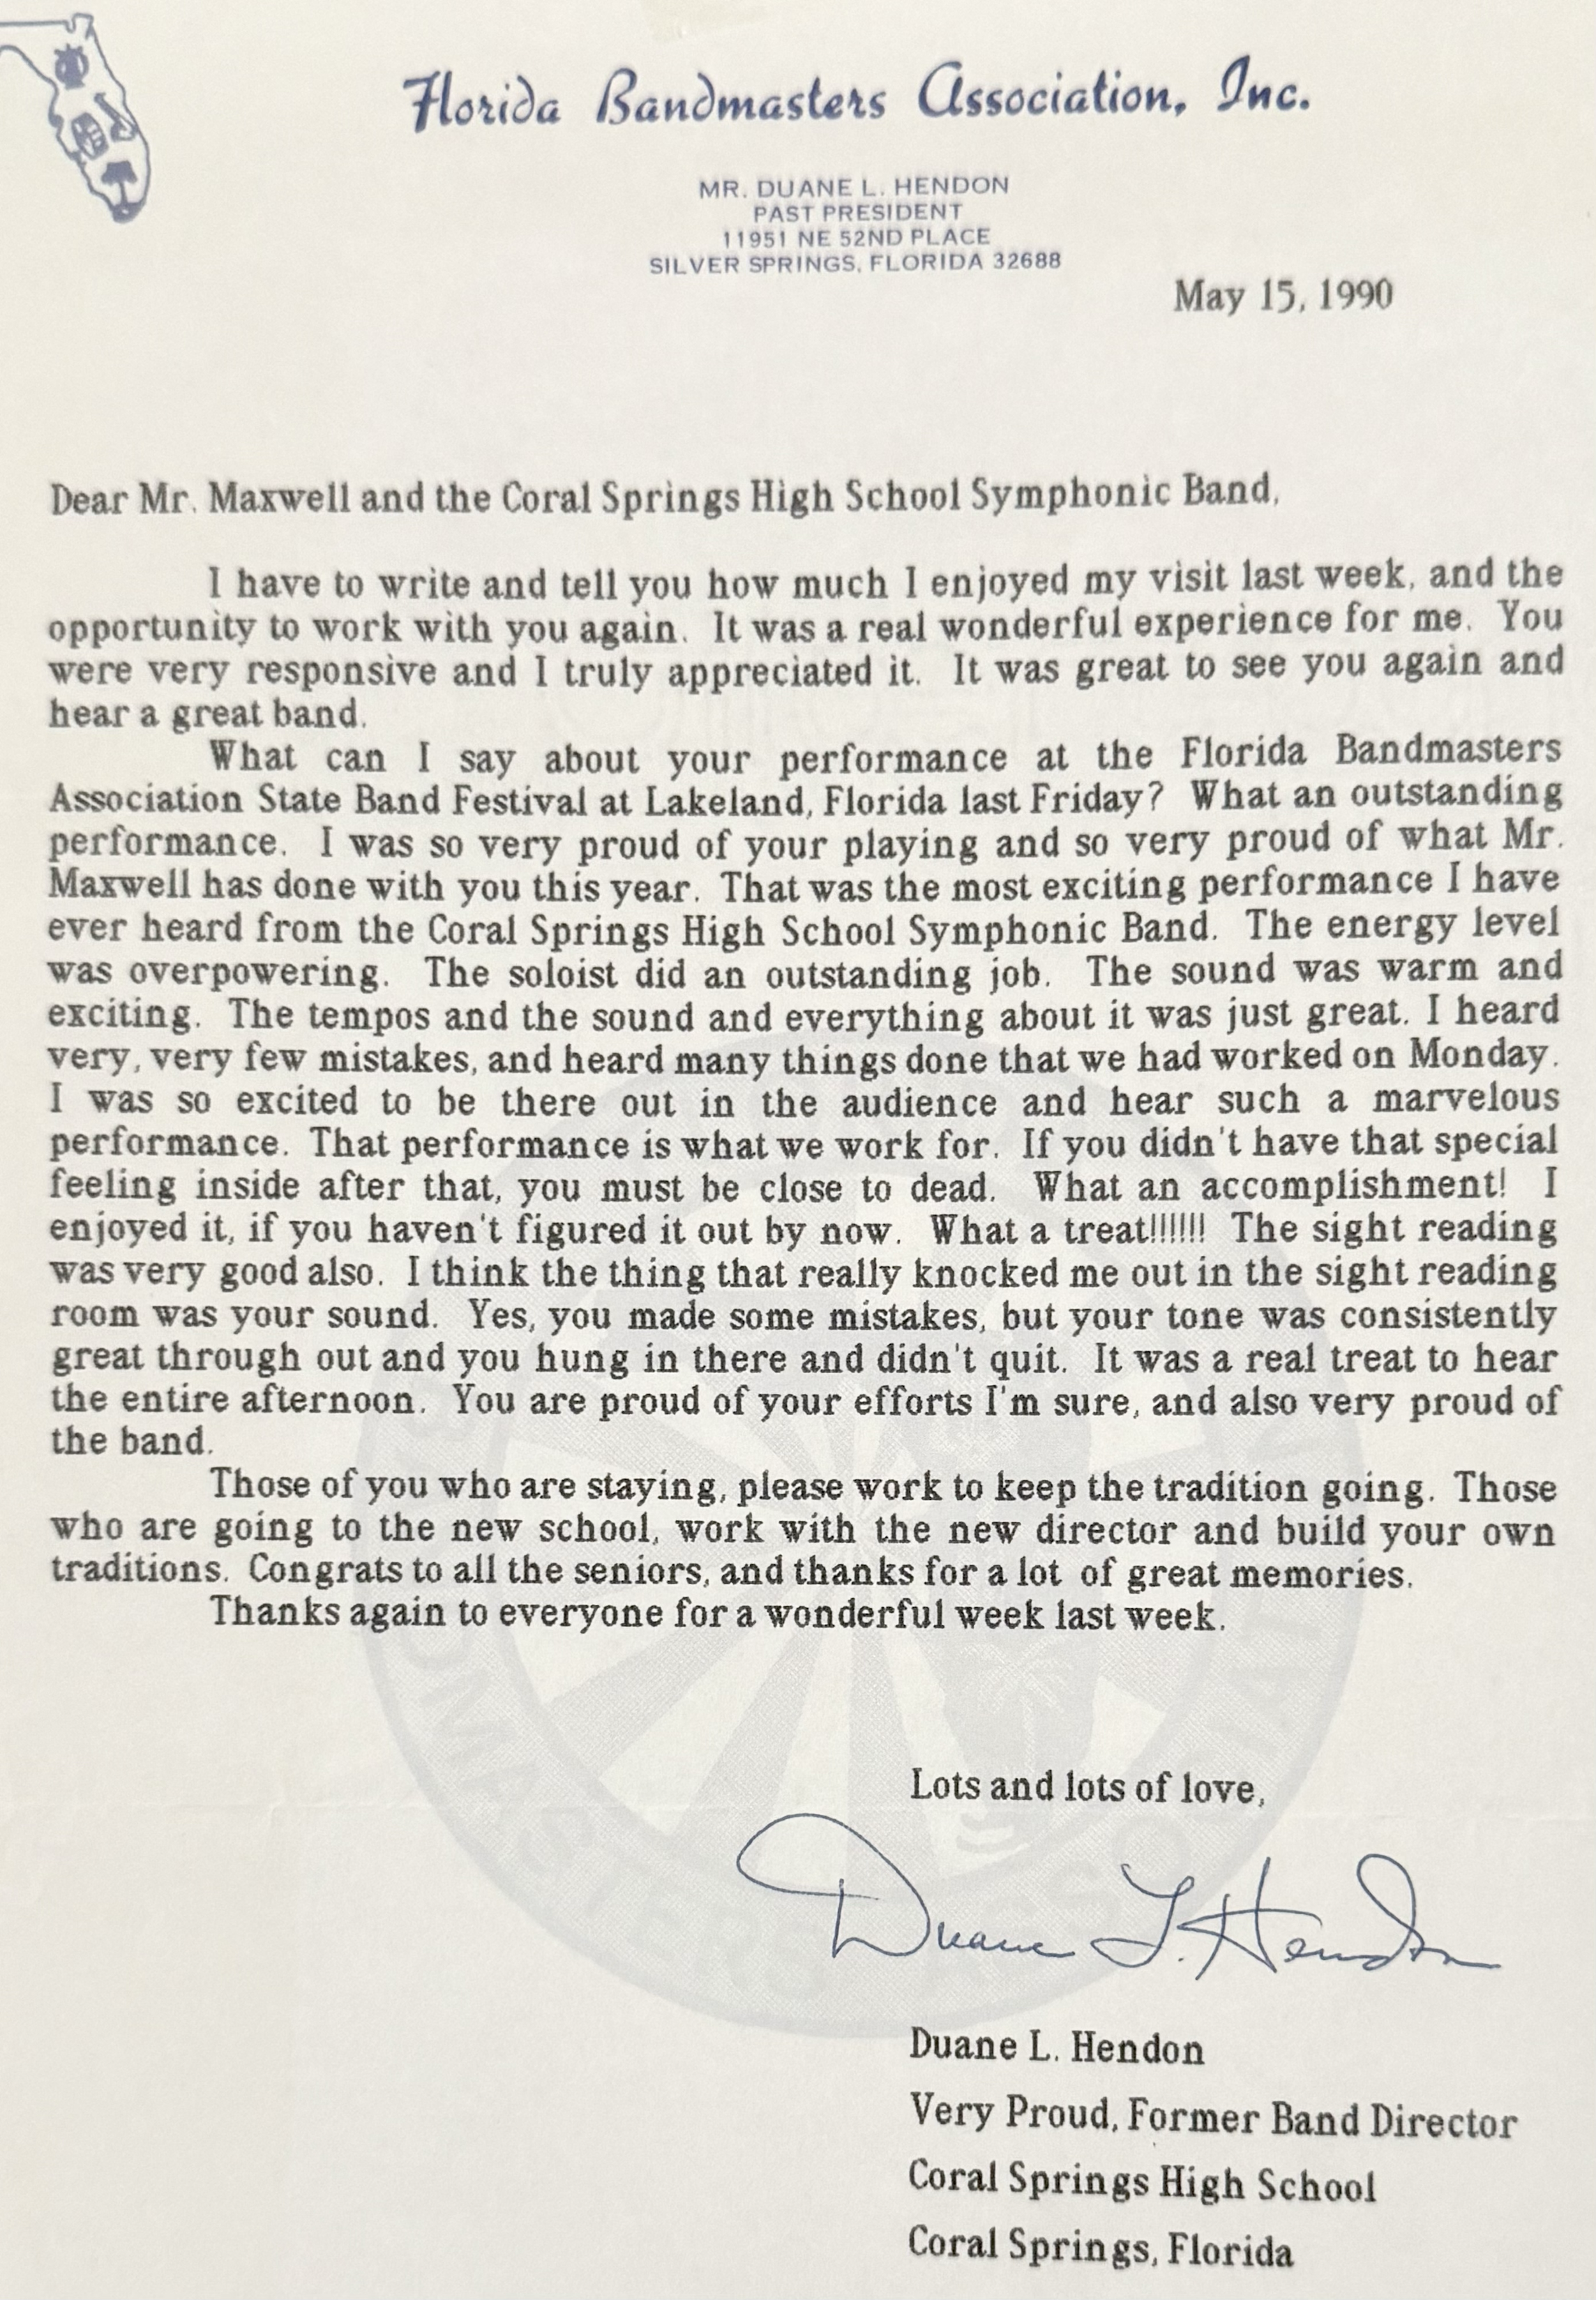 Florida Bandmasters Association, Inc.
MR. DUANE L. HENDON
PAST PRESIDENT
11951 NE 52ND PLACE
SILVER SPRINGS, FLORIDA 32688
May 15, 1990
Dear Mr. Maxwell and the Coral Springs High School Symphonic Band,
I have to write and tell you how much I enjoyed my visit last week, and the
opportunity to work with you again. It was a real wonderful experience for me. You
were very responsive and I truly appreciated it. It was great to see you again and
hear a great band.
What can I say about your performance at the Florida Bandmasters
Association State Band Festival at Lakeland, Florida last Friday? What an outstanding
performance. I was so very proud of your playing and so very proud of what Mr.
Maxwell has done with you this year. That was the most exciting performance I have
ever heard from the Coral Springs High School Symphonic Band. The energy level
was overpowering. The soloist did an outstanding job. The sound was warm and
exciting. The tempos and the sound and everything about it was just great. I heard
very, very few mistakes, and heard many things done that we had worked on Monday.
I was so excited to be there out in the audience and hear such a marvelous
performance. That performance is what we work for. If you didn't have that special
feeling inside after that, you must be close to dead. What an accomplishment! I
enjoyed it, if you haven't figured it out by now. What a treat!!!!!! The sight reading
was very good also. I think the thing that really knocked me out in the sight reading
room was your sound. Yes, you made some mistakes, but your tone was consistently
great through out and you hung in there and didn't quit. It was a real treat to hear
the entire afternoon. You are proud of your efforts I'm sure, and also very proud of
the band.
Those of you who are staying, please work to keep the tradition going. Those
who are going to the new school, work with the new director and build your own
traditions. Congrats to all the seniors, and thanks for a lot of great memories.
Thanks again to everyone for a wonderful week last week.
Lots and lots of love,
Duane L. Hendon
Duane L. Hendon
Very Proud, Former Band Director
Coral Springs High School
Coral Springs, Florida